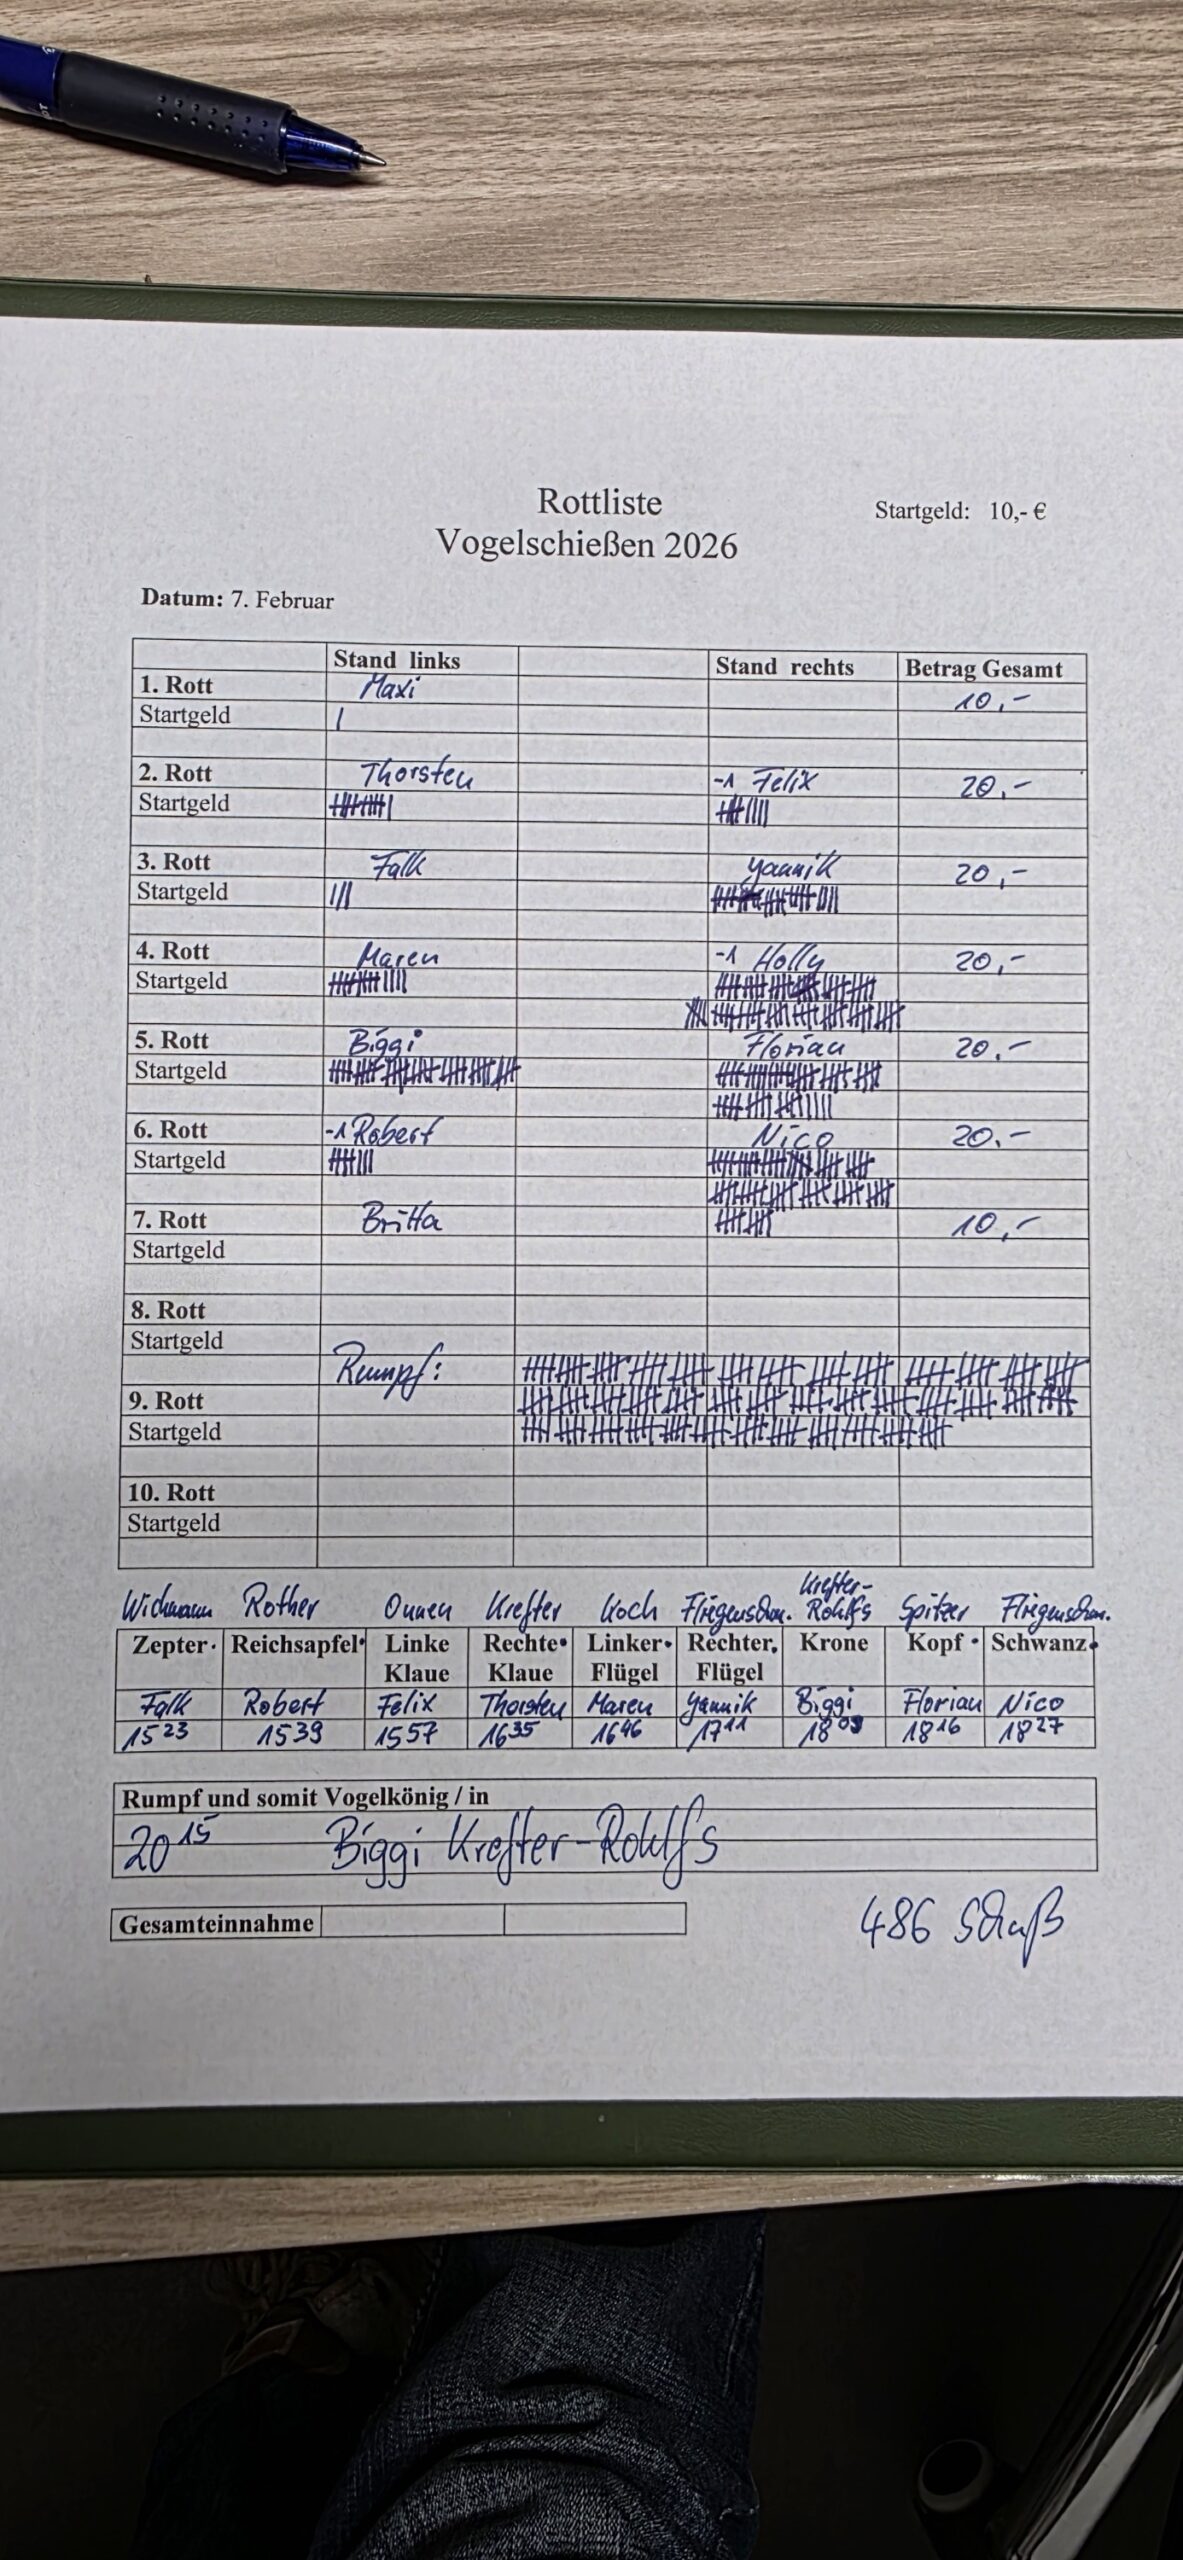 Rottliste
Startgeld: 10,- €
Vogelschießen 2026
Datum: 7. Februar
Stand links Stand rechts Betrag Gesamt
1. Rott Maxi 10,-
Startgeld
2. Rott Thorsten -1 Felix 20,-
Startgeld
3. Rott Falk Yannik 20,-
Startgeld
4. Rott Maren -1 Holly 20,-
Startgeld
5. Rott Biggi Florian 20,-
Startgeld
6. Rott -1 Robert Nico 20,-
Startgeld
7. Rott Britta 10,-
Startgeld
8. Rott
Startgeld
Rumpf:
9. Rott
Startgeld
10. Rott
Startgeld
Wichmann Rother Onnen Krefter Koch Fliegenschm. Krefter-Rohlfs Spitzer Fliegenschm.
Zepter Reichsapfel Linke Klaue Rechte Klaue Linker Flügel Rechter Flügel Krone Kopf Schwanz
Falk Robert Felix Thorsten Maren Yannik Biggi Florian Nico
15 23 15 39 15 57 16 35 16 46 17 11 18 09 18 16 18 27
Rumpf und somit Vogelkönig / in
20 15 Biggi Krefter-Rohlfs
Gesamteinnahme
486 Schuß